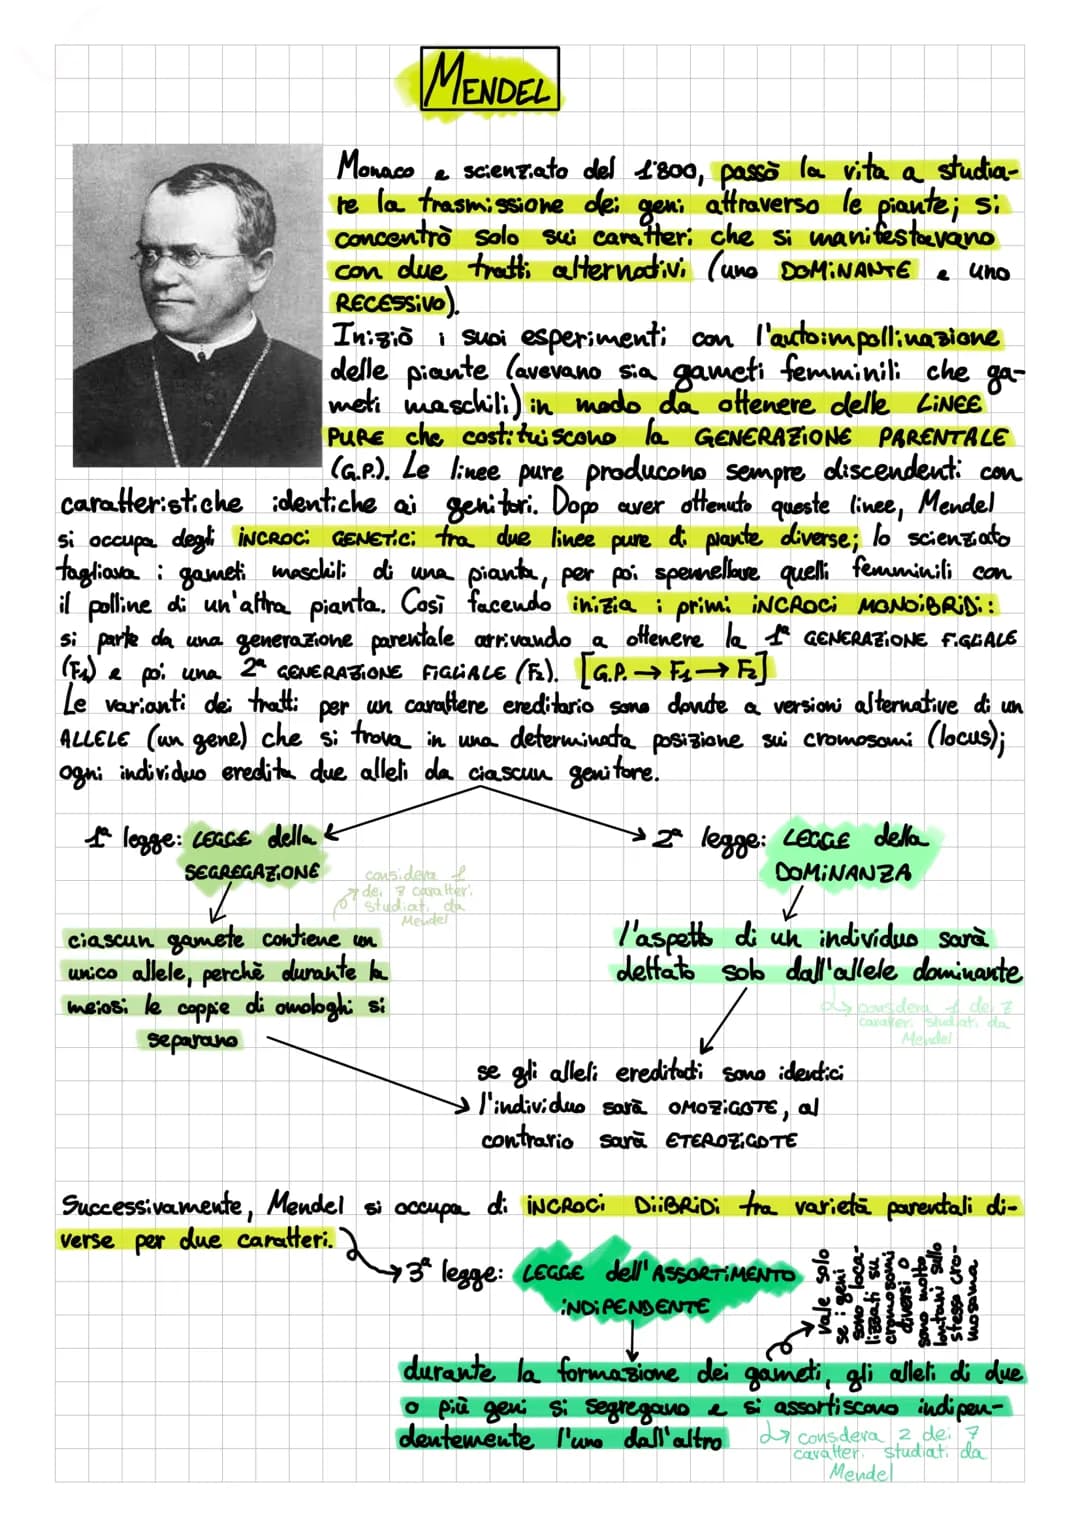 MENDEL
Monaco e scienziato del 1'800, passò la vita a studia-
re la trasmissione dei geni attraverso le piante; si
concentrò solo sui caratteri che si manifestavano
con due tratti alternativi (uno DOMINANTE e uno
RECESSIVO).
Iniziò i suoi esperimenti con l'autoimpollinazione
delle piante (avevano sia gameti femminili che ga-
meti maschili) in modo da ottenere delle LINEE
PURE che costituiscono la GENERAZIONE PARENTALE
(G.P.). Le linee pure producono sempre discendenti con
caratteristiche identiche ai genitori. Dopo aver ottenuto queste linee, Mendel
si occupa degli INCROCI GENETICI tra due linee pure di piante diverse; lo scienziato
tagliava i gameti maschili di una pianta, per poi spennellare quelli femminili con
il polline di un'altra pianta. Così facendo inizia i primi INCROCI MONOIBRIDI:
si parte da una generazione parentale arrivando a ottenere la 1ª GENERAZIONE FIGLIALE
(F1) e poi una 2ª GENERAZIONE FIGLIALE (F2). [G.P. → F1 → F2]
Le varianti dei tratti per un carattere ereditario sono dovute a versioni alternative di un
ALLELE (un gene) che si trova in una determinata posizione sui cromosomi (locus);
ogni individuo eredita due alleli da ciascun genitore.
1ª legge: LEGGE della
SEGREGAZIONE
considera 1
dei 7 caratteri
studiati da
Mendel
ciascun gamete contiene un
unico allele, perchè durante la
meiosi le coppie di omologhi si
separano
2ª legge: LEGGE della
DOMINANZA
l'aspetto di un individuo sarà
dettato solo dall'allele dominante
considera 1 dei 7
caratteri studiati da
Mendel
se gli alleli ereditati sono identici
l'individuo sarà OMOZIGOTE, al
contrario sarà ETEROZIGOTE
Successivamente, Mendel si occupa di INCROCI DIIBRIDI tra varietà parentali di-
verse per due caratteri.
3ª legge: LEGGE dell'ASSORTIMENTO
INDIPENDENTE
vale solo
se i geni
sono loca-
lizzati su
cromosomi
diversi o
sono molto
lontani sullo
stesso cro-
mosoma
durante la formazione dei gameti, gli alleli di due
o più geni si segregano e si assortiscono indipen-
dentemente l'uno dall'altro
considera 2 dei 7
caratteri studiati da
Mendel